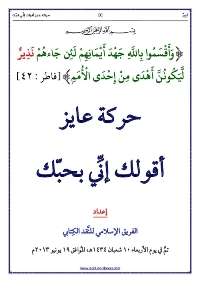 بسم الله الرحمن الرحيم
﴿وَأَقْسَمُوا بِاللَّهِ جَهْدَ أَيْمَانِهِمْ لَئِن جَاءهُمْ نَذِيرٌ
لَّيَكُونُنَّ أَهْدَى مِنْ إِحْدَى الْأُمَمِ﴾ [فاطر : ٤٢]
حركة عايز
أقولك إنِّي بحبّك
إعداد
الفريق الإسلامي للنَّقد الكِتابي
تمَّ في يوم الأربعاء ١٠ شعبان ١٤٣٤هـ، الموافق ١٩ يونيو ٢٠١٣م